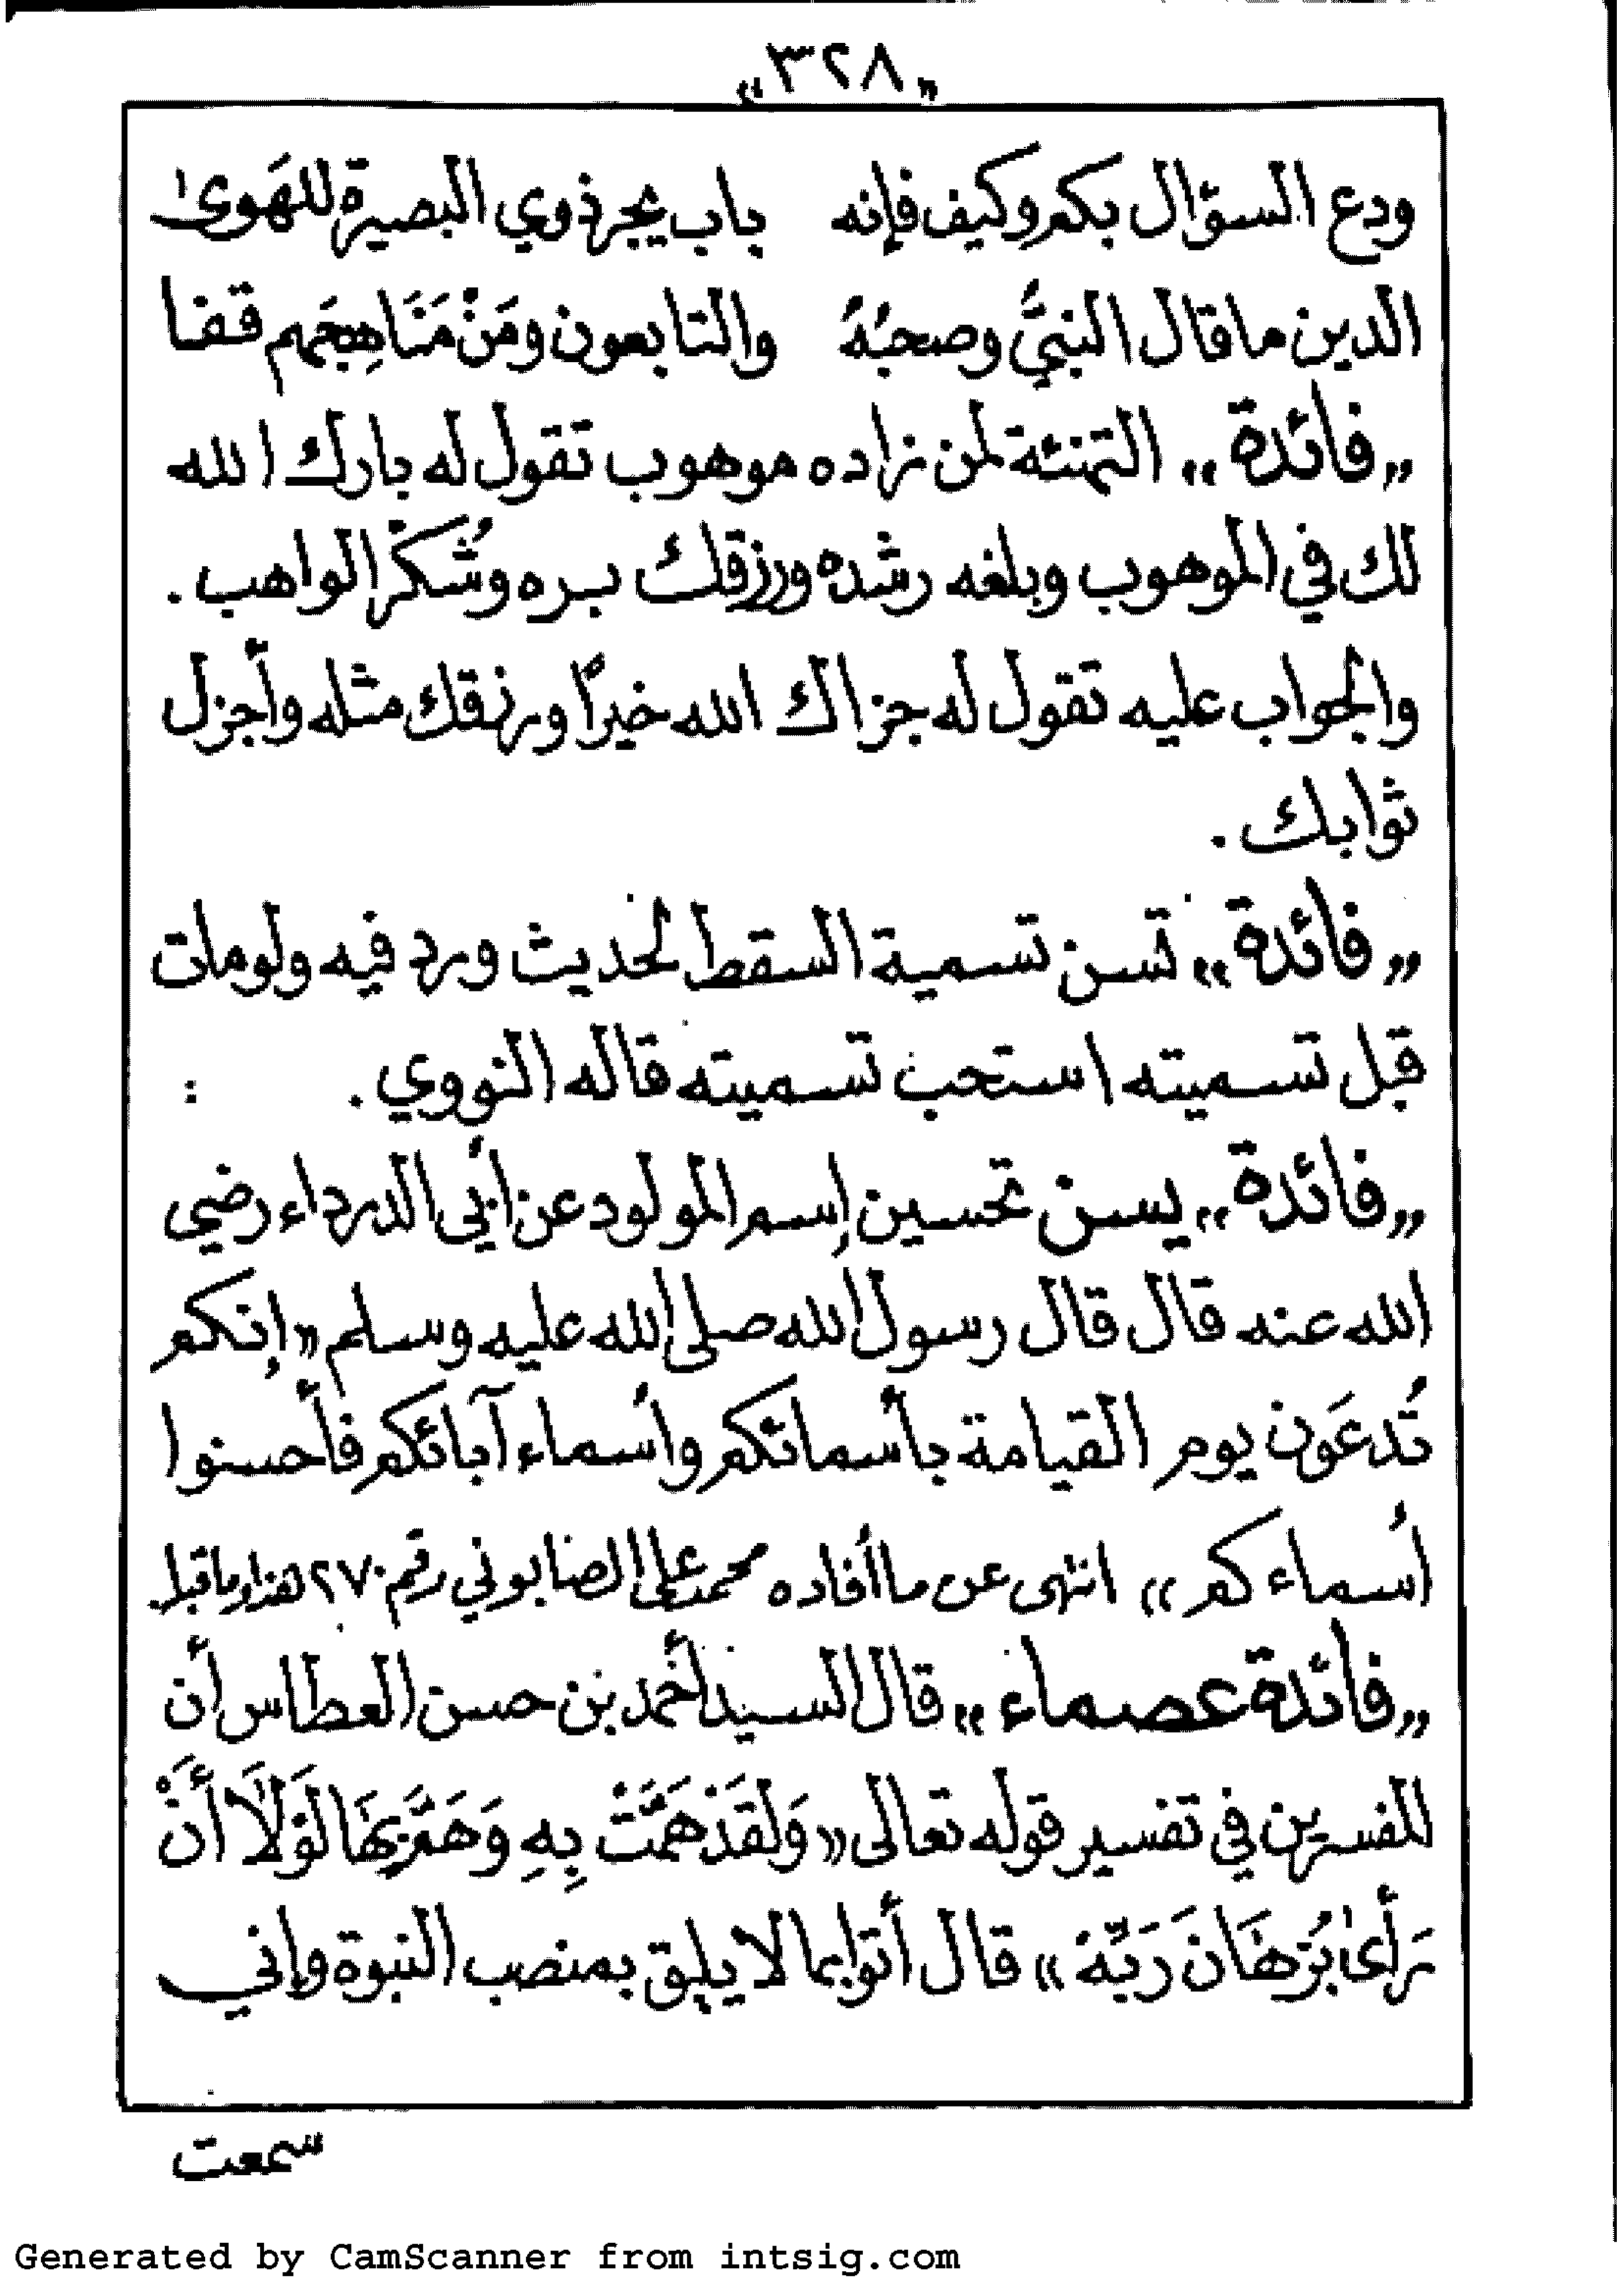 «٣٢٨»
ودع السؤال بكم وكيف فإنه باب يجر ذوي البصيرة للهَوىٰ
الدين ما قال النبيُّ وصحبُهُ والتابعون ومَنْ مَنَاهِجَهم قفا
«فائدة» التهنئة لمن زاده موهوب تقول له بارك الله
لك في الموهوب وبلغه رشده ورزقك بره وشُكْرَ الواهب .
والجواب عليه تقول له جزاك الله خيرًا ورزقك مثله وأجزل
ثوابك .
«فائدة» تسن تسمية السقط لحديث ورد فيه ولومات
قبل تسميته استحب تسميته قاله النووي .
«فائدة» يسن تحسين إسم المولود عن أبي الدرداء رضي
الله عنه قال قال رسول الله صلى الله عليه وسلم «إنكم
تُدعَون يوم القيامة بأسمائكم وأسماء آبائكم فأحسنوا
أسماءكم» انتهى عن ما أفاده محمد علي الصابوني رقم ٢٧٠ هذا وما قبل
«فائدة عصماء» قال السيد أحمد بن حسن العطاس أن
المفسرين في تفسير قوله تعالى «وَلَقَدْ هَمَّتْ بِهِ وَهَمَّ بِهَا لَوْلَا أَنْ
رَأىٰ بُرْهَانَ رَبِّهِ» قال أتوا بما لا يليق بمنصب النبوة وإني
سمعت
Generated by CamScanner from intsig.com